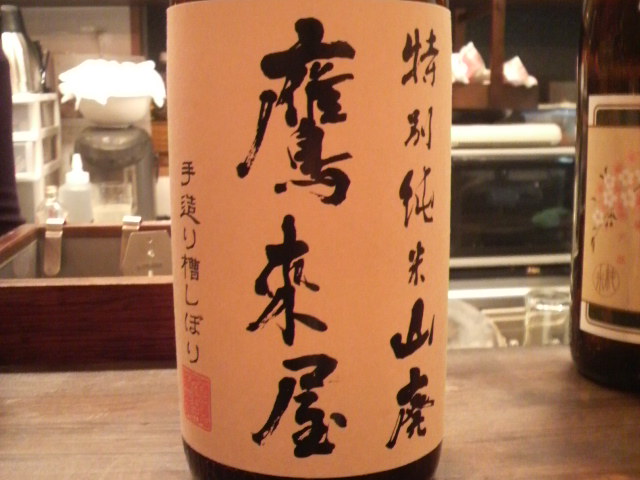 特別純米山廃
鷹来屋
手造り槽しぼり